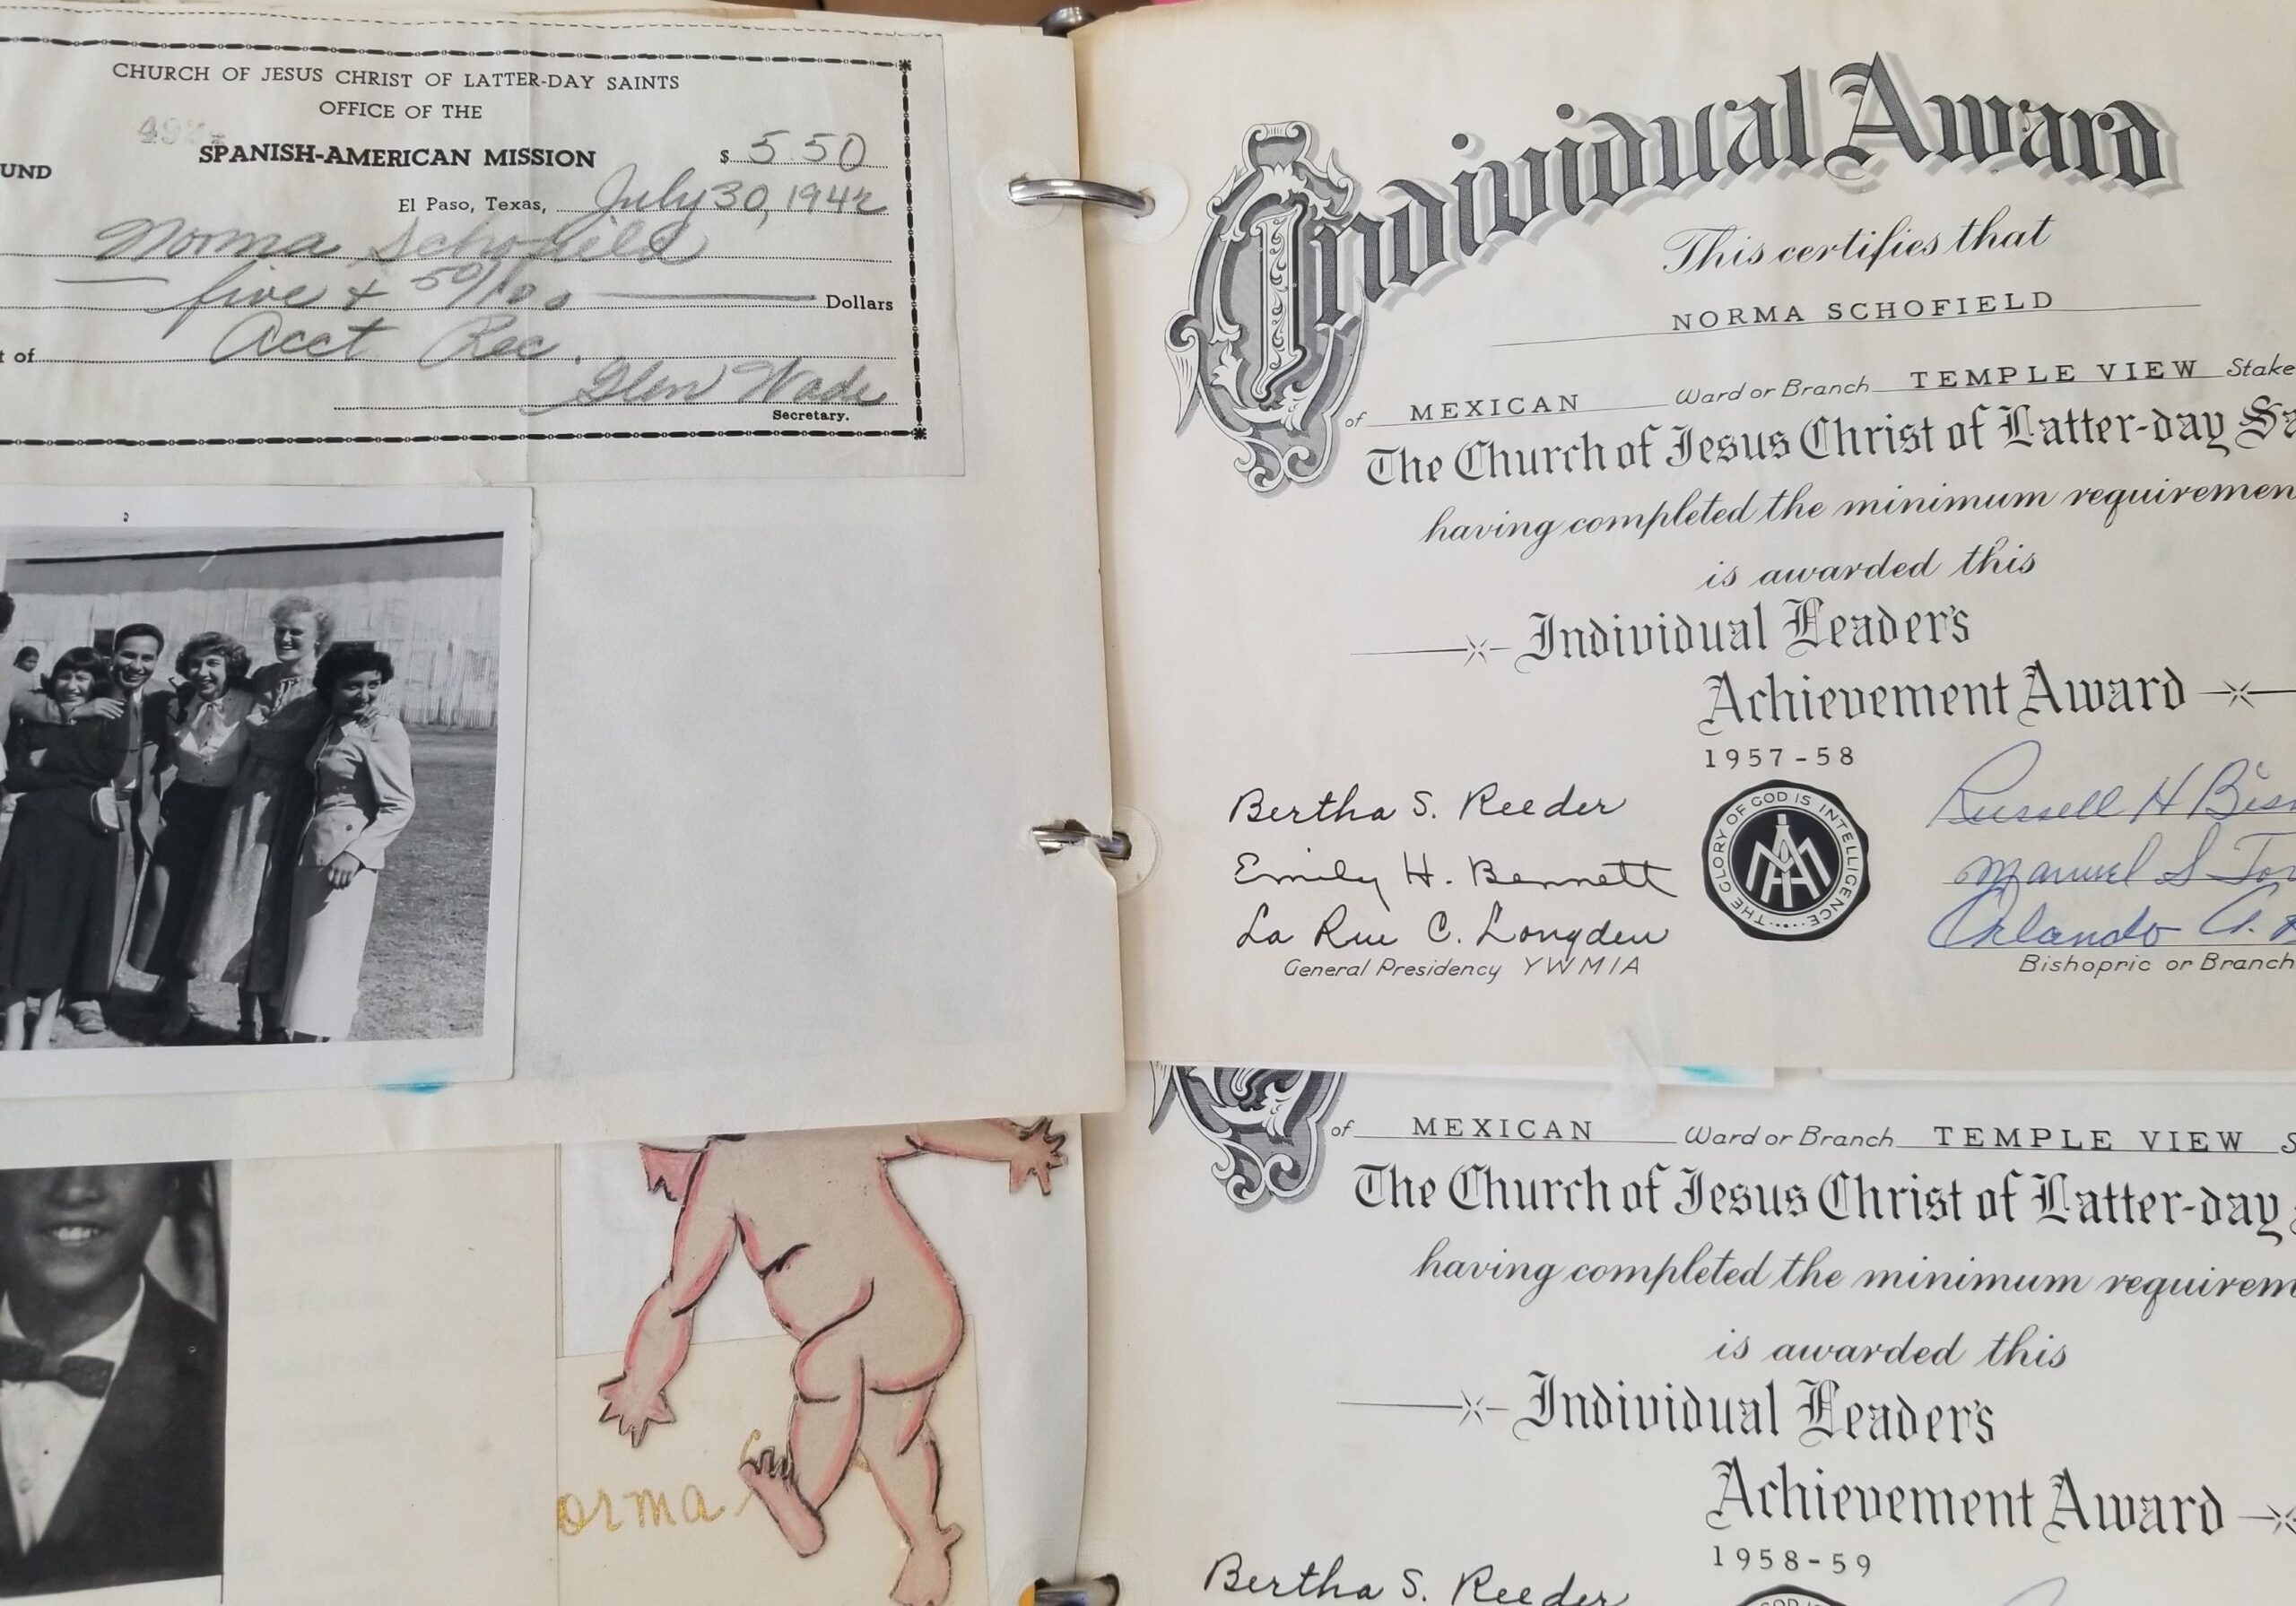 CHURCH OF JESUS CHRIST OF LATTER-DAY SAINTS
OFFICE OF THE
SPANISH-AMERICAN MISSION
$ 5.50
UND
El Paso, Texas, July 30, 1942
Norma Schofield
five & 50/100 Dollars
t of Acct Rec.
Glen Wade
Secretary.
orma
Individual Award
This certifies that
NORMA SCHOFIELD
of MEXICAN Ward or Branch TEMPLE VIEW Stake
The Church of Jesus Christ of Latter-day Sa
having completed the minimum requiremen
is awarded this
Individual Leader's
Achievement Award
1957-58
Bertha S. Reeder
Emily H. Bennett
La Rue C. Longden
General Presidency YWMIA
THE GLORY OF GOD IS INTELLIGENCE
MIA
Russell H Bis
Manuel S Tor
Orlando A.
Bishopric or Branch
of MEXICAN Ward or Branch TEMPLE VIEW S
The Church of Jesus Christ of Latter-day
having completed the minimum requirem
is awarded this
Individual Leader's
Achievement Award
1958-59
Bertha S. Reeder
GOD IS